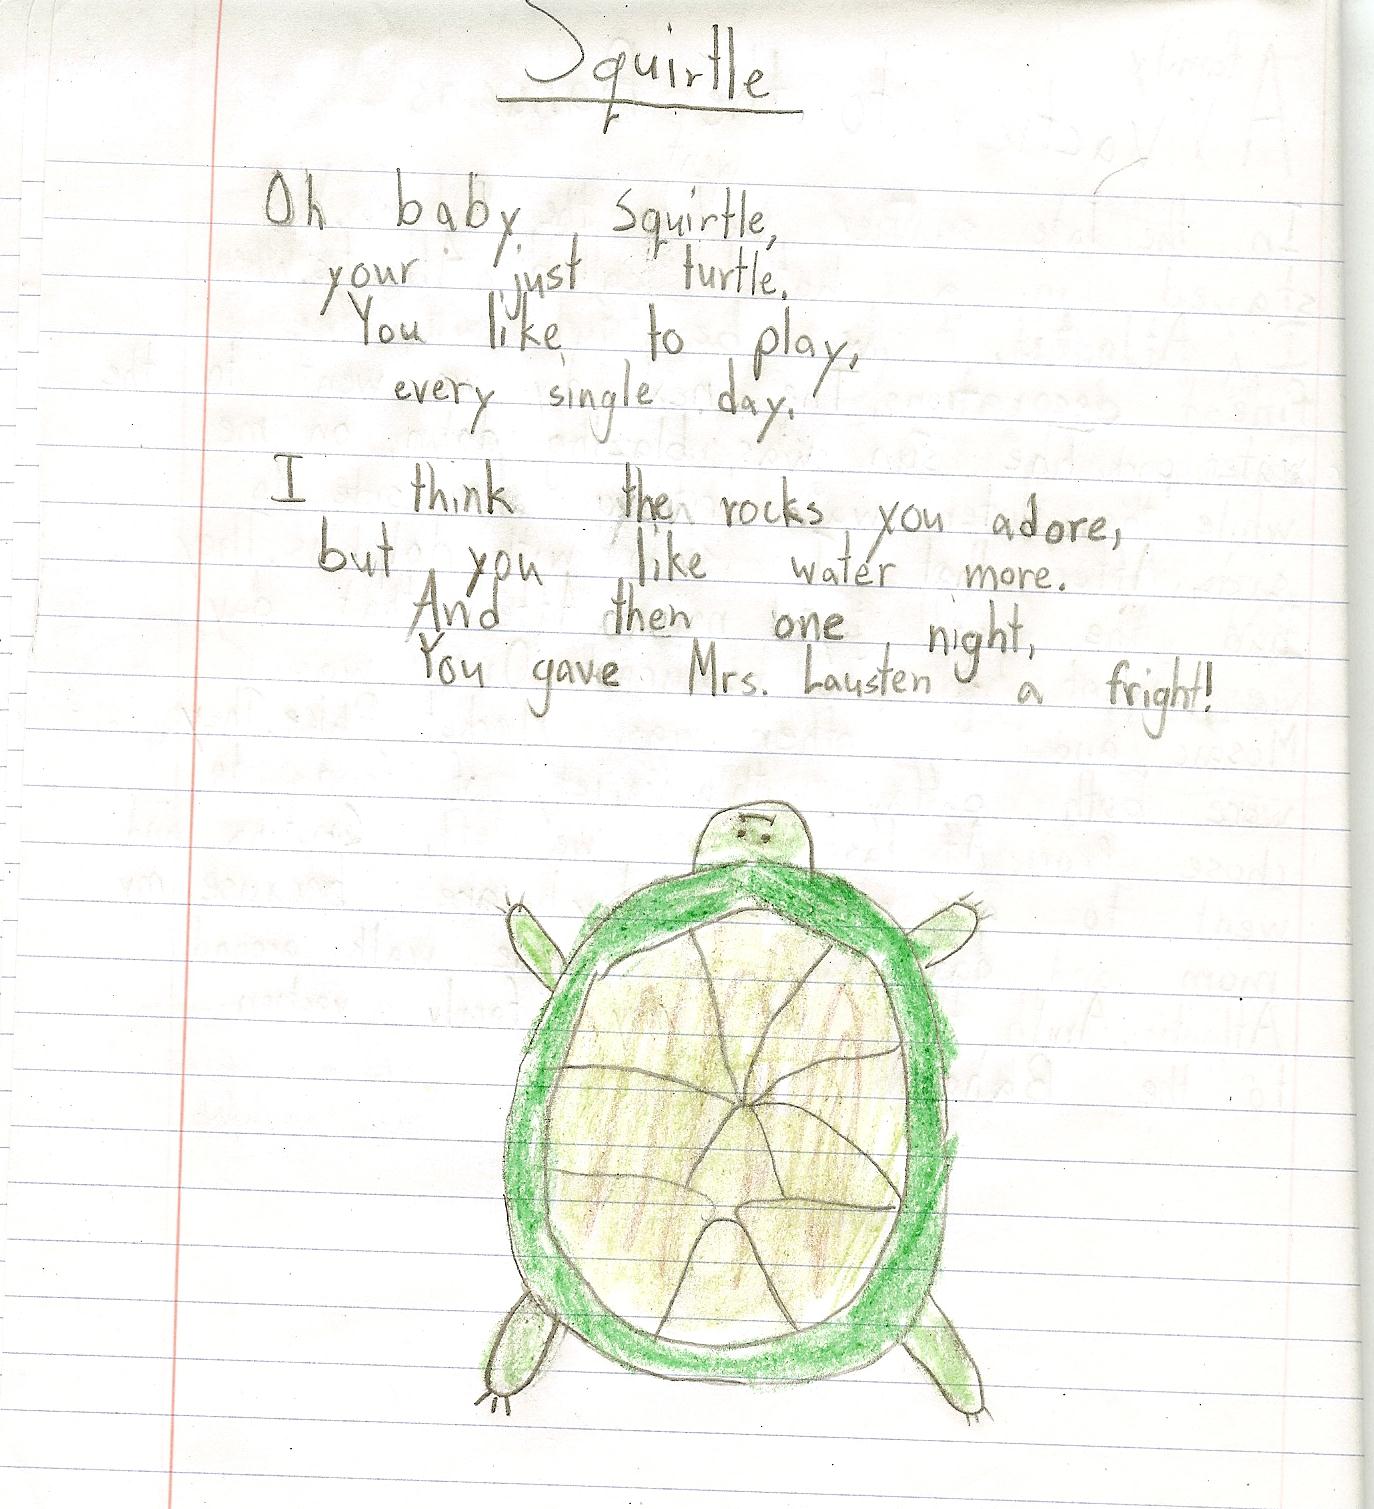 Squirtle
Oh baby Squirtle,
your just turtle.
You like to play,
every single day.
I think the rocks you adore,
but you like water more.
And then one night,
You gave Mrs. Lausten a fright!